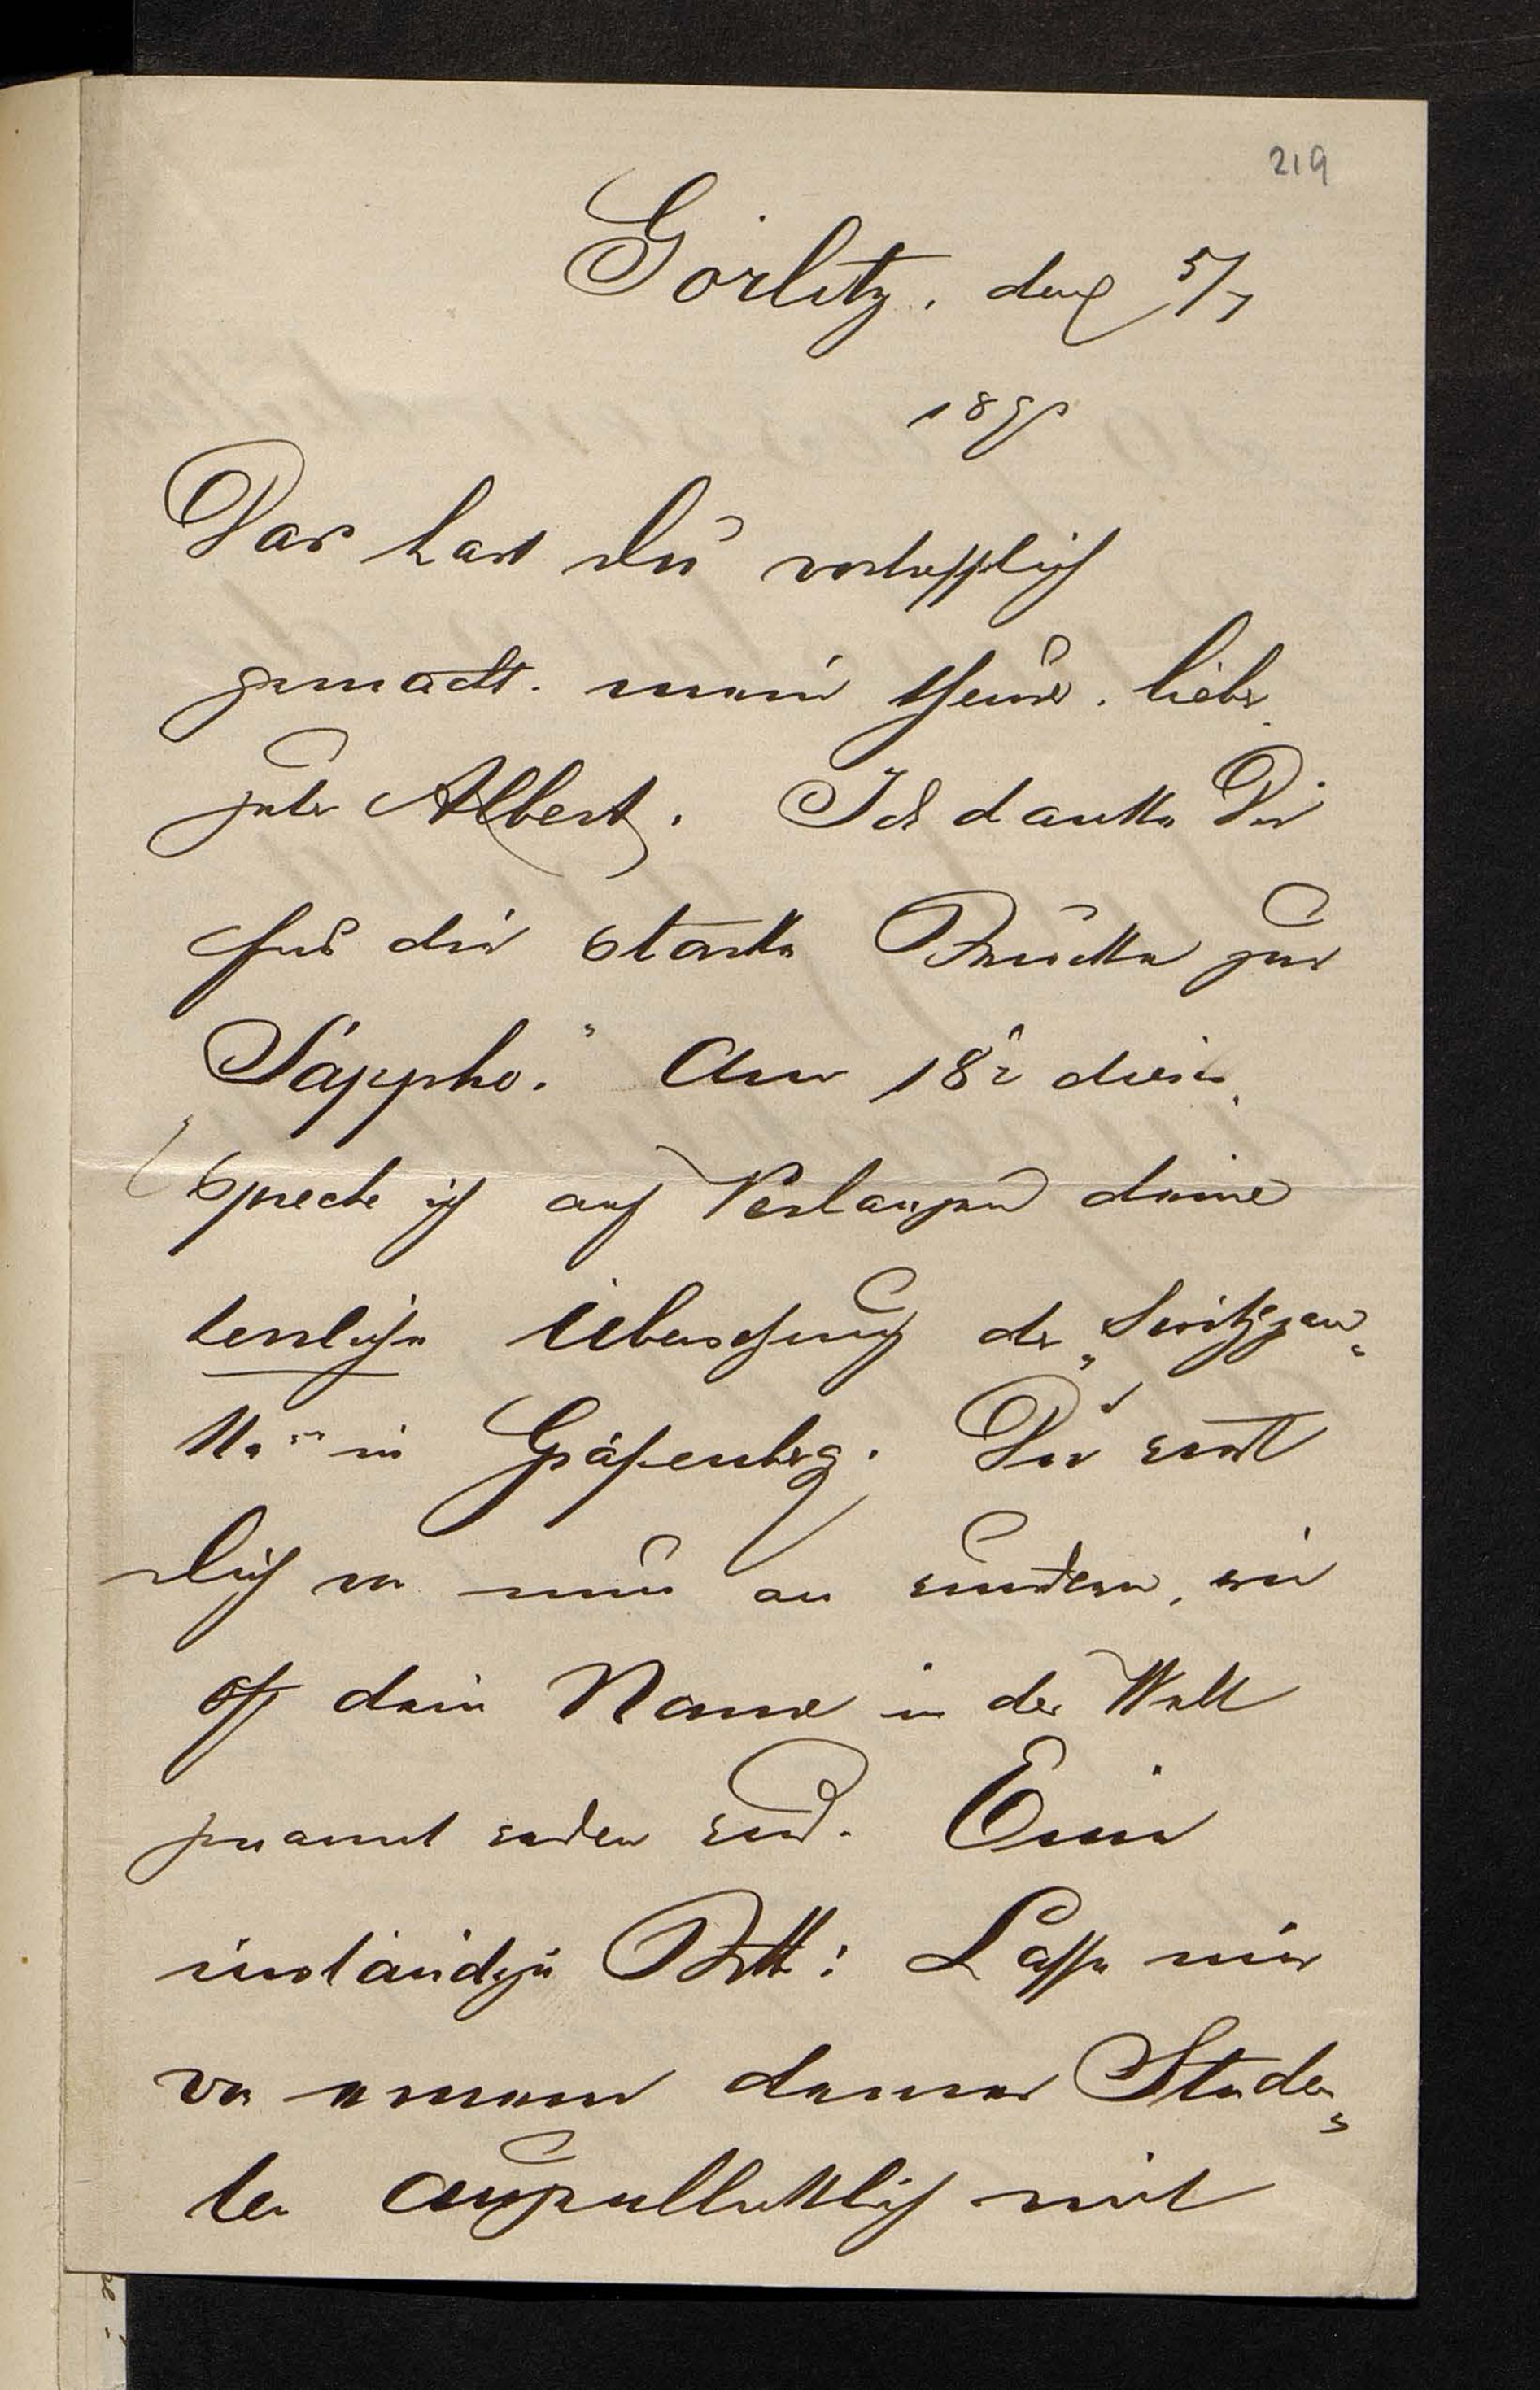 219
Görlitz, den 5/7
189
Das hast Du vortrefflich
gemacht, mein theurer, lieber
guter Albert. Ich danke Dir
für die starke Brücke zur
"Sappho." Am 18t dieses
spreche ich auf Verlangen deine
herrliche Uebersetzung der
in Gräfenberg. Du wirst
Dich von nun an wundern, wie
oft dein Name in der Welt
genannt werden wird. Eine
inständige Bitte: Lasse mir
von einem deiner Studen-
ten augenblicklich mit